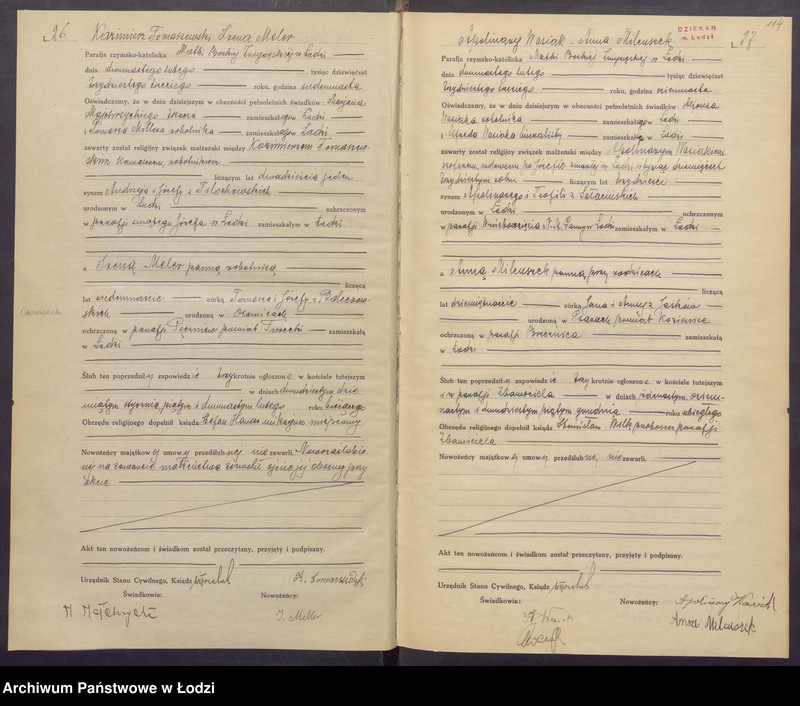 L. 26 Kazimierz Tomaszewski Irena Meler
Parafja rzymsko-katolicka Matki Boskiej Zwycięskiej w Łodzi
dnia dwunastego lutego tysiąc dziewięćset
trzydziestego roku, godzina siedemnasta
Oświadczamy, że w dniu dzisiejszym w obecności pełnoletnich świadków: Marjana
zamieszkałego w Łodzi
i Tomasza Millera robotnika zamieszkałego w Łodzi
zawarty został religijny związek małżeński między Kazimierzem Tomaszew-
skim kawalerem, robotnikiem
liczącym lat dwadzieścia jeden
synem Andrzeja i Józefy z
urodzonym w Łodzi ochrzczonym
w parafji świętego Józefa w Łodzi zamieszkałym w Łodzi
a Ireną Meler panną robotnicą
liczącą
lat siedemnaście córką Tomasza i Józefy z
urodzoną w
ochrzczoną w parafji powiat zamieszkałą
w Łodzi
Ślub ten poprzedziły zapowiedzie trzykrotnie ogłoszone w kościele tutejszym
w dniach dwudziestym dzie-
wiątym stycznia, piątym i dwunastym lutego roku bieżącego
Obrzędu religijnego dopełnił ksiądz Stefan wikarjusz miejscowy
Nowożeńcy majątkowej umowy przedślubnej nie zawarli.
na zawarcie małżeństwa zezwolił ojciec jej obecny przy
akcie
Akt ten nowożeńcom i świadkom został przeczytany, przyjęty i podpisany.
Urzędnik Stanu Cywilnego, Ksiądz
K. Tomaszewski
Świadkowie: Nowożeńcy:
I. Meller
114
DZIEKAN
m. Łodzi
Apolinary Wasiak - Anna Mileuszek L. 27
Parafja rzymsko-katolicka Matki Boskiej Zwycięskiej w Łodzi
dnia dwunastego lutego tysiąc dziewięćset
trzydziestego roku, godzina siemnasta
Oświadczamy, że w dniu dzisiejszym w obecności pełnoletnich świadków:
Wasiaka robotnika zamieszkałego w Łodzi
i Alfreda Wasiaka zamieszkałego w Łodzi
zawarty został religijny związek małżeński między Apolinarym Wasiakiem
wdowcem po Józefie zmarłej w Łodzi tysiąc dziewięćset
trzydziestym roku liczącym lat trzydzieści
synem Apolinarego i Teofili z
urodzonym w Łodzi ochrzczonym
w parafji Wniebowzięcia N. M. Panny w Łodzi zamieszkałym w Łodzi
a Anną Mileuszek panną, przy rodzicach
liczącą
lat dziewiętnaście córką Jana i
urodzoną w powiat
ochrzczoną w parafji Brzeźnica zamieszkałą
w Łodzi
Ślub ten poprzedziły zapowiedzie trzykrotnie ogłoszone w kościele tutejszym
i w parafji Zbawiciela w dniach jedenastym, osiem-
nastym i dwudziestym piątym grudnia roku ubiegłego
Obrzędu religijnego dopełnił ksiądz Stanisław Wilk proboszcz parafji
Zbawiciela
Nowożeńcy majątkowej umowy przedślubnej nie zawarli.
Akt ten nowożeńcom i świadkom został przeczytany, przyjęty i podpisany.
Urzędnik Stanu Cywilnego, Ksiądz
Świadkowie: Nowożeńcy: Apolinary Wasiak
Anna Mileuszek
Archiwum Państwowe w Łodzi